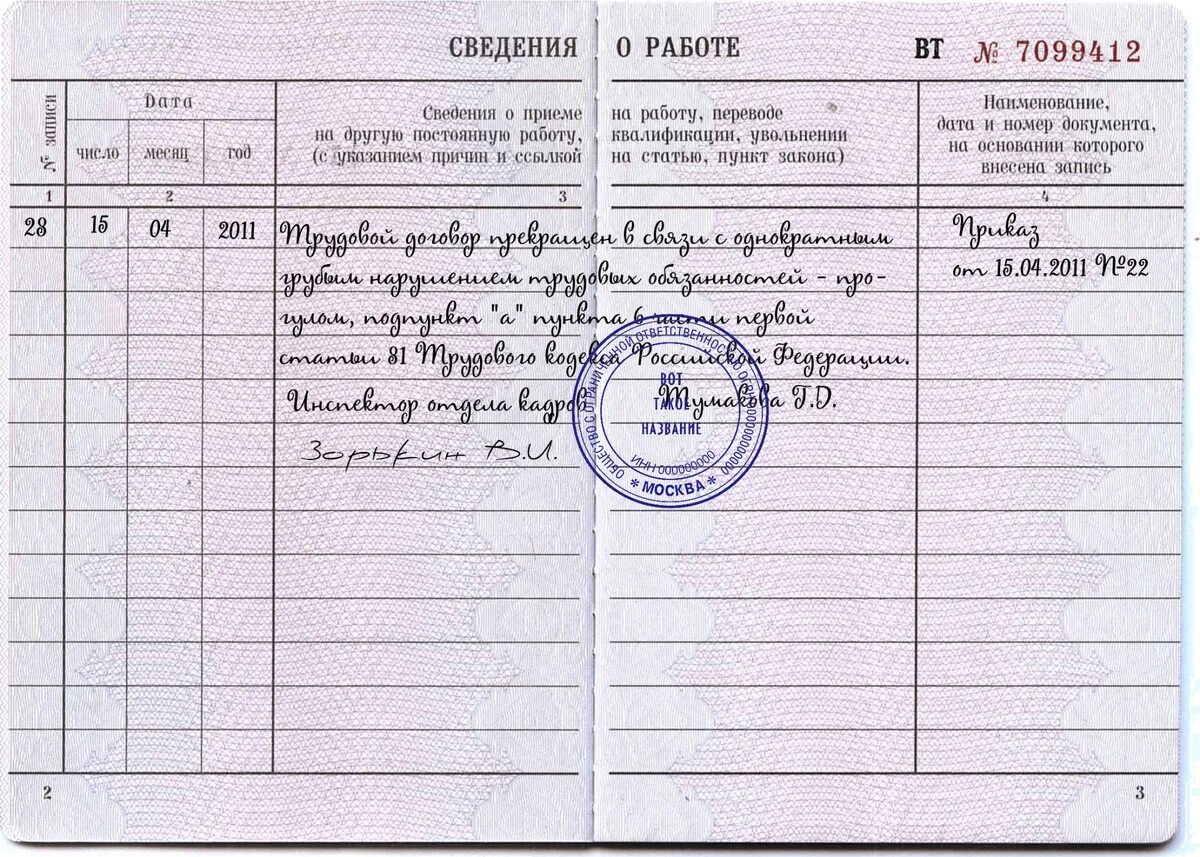 СВЕДЕНИЯ О РАБОТЕ ВТ № 7099412
№ записи
Дата
число месяц год
Сведения о приеме на работу, переводе
на другую постоянную работу, квалификации, увольнении
(с указанием причин и ссылкой на статью, пункт закона)
Наименование,
дата и номер документа,
на основании которого
внесена запись
1 2 3 4
28 15 04 2011 Трудовой договор прекращен в связи с однократным
грубым нарушением трудовых обязанностей - про-
гулом, подпункт "а" пункта 6 части первой
статьи 81 Трудового кодекса Российской Федерации.
Инспектор отдела кадров Тумакова Г.D.
Зорькин В.И.
Приказ
от 15.04.2011 №22
ОБЩЕСТВО С ОГРАНИЧЕННОЙ ОТВЕТСТВЕННОСТЬЮ ОГРН 0000000000000
ВОТ
ТАКОЕ
НАЗВАНИЕ
ИНН 000000000
* МОСКВА *
2 3